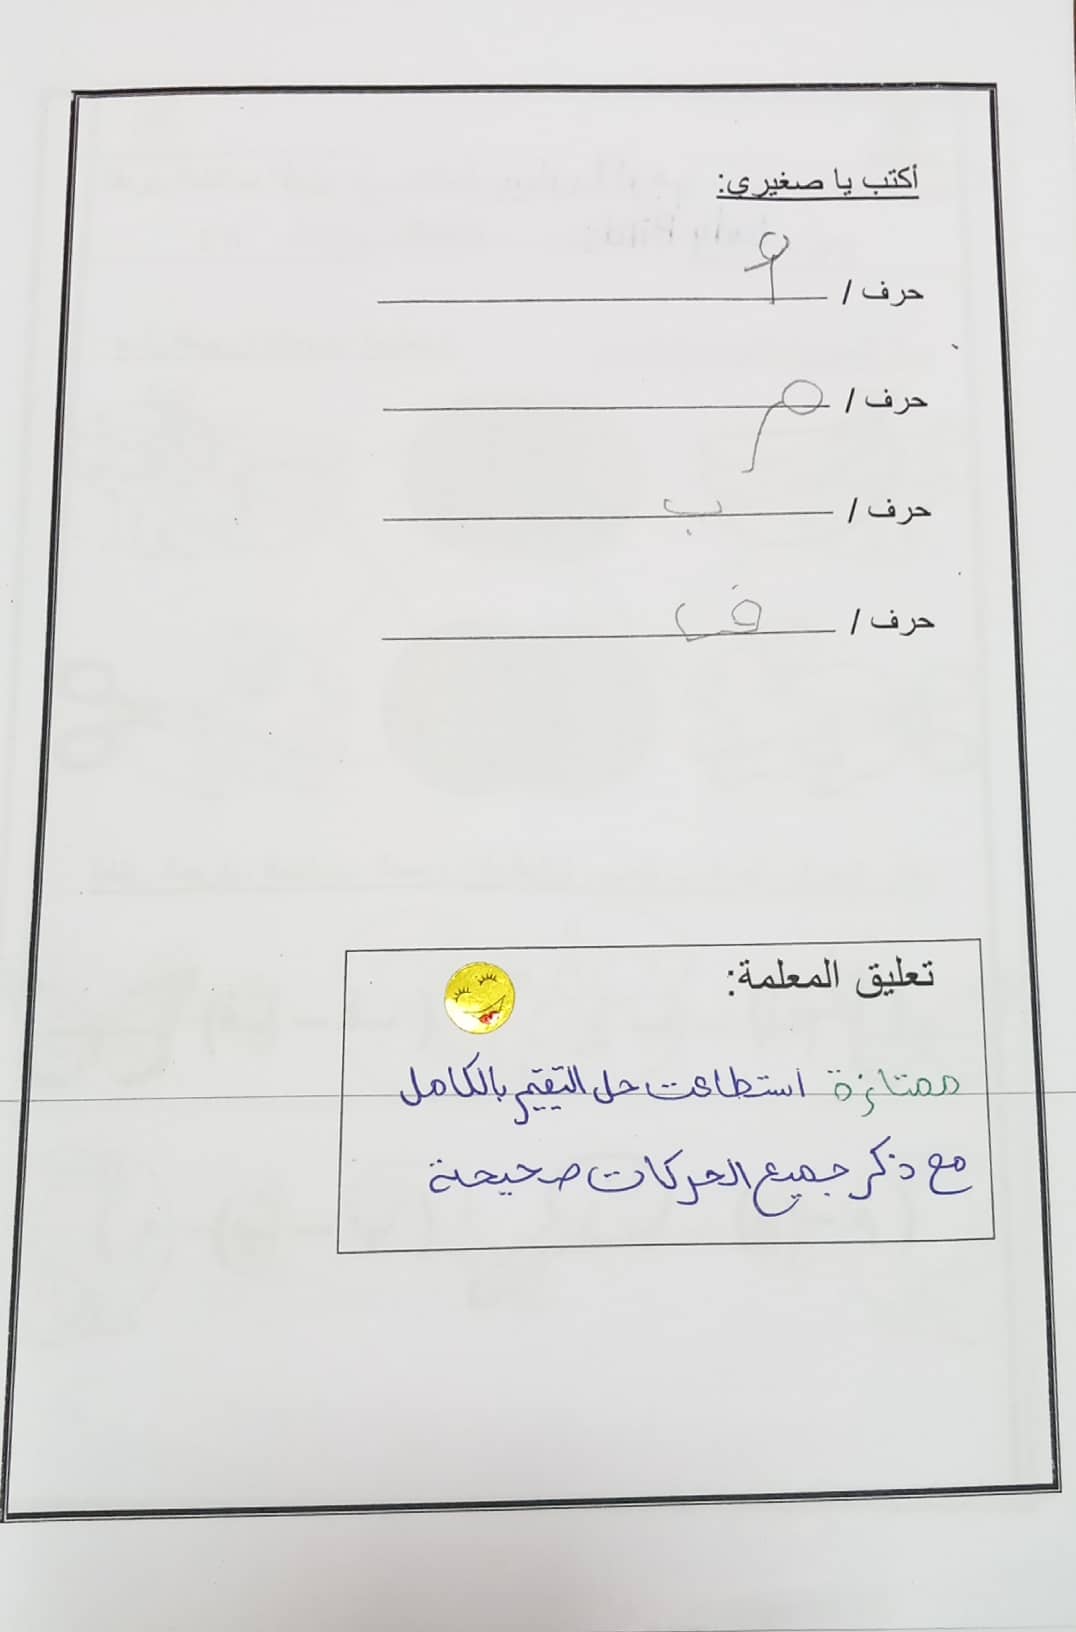 أكتب يا صغيري:
حرف / أ
حرف / م
حرف / ب
حرف / ف
تعليق المعلمة:
ممتازة استطاعت حل التقييم بالكامل
مع ذكر جميع الحركات صحيحة